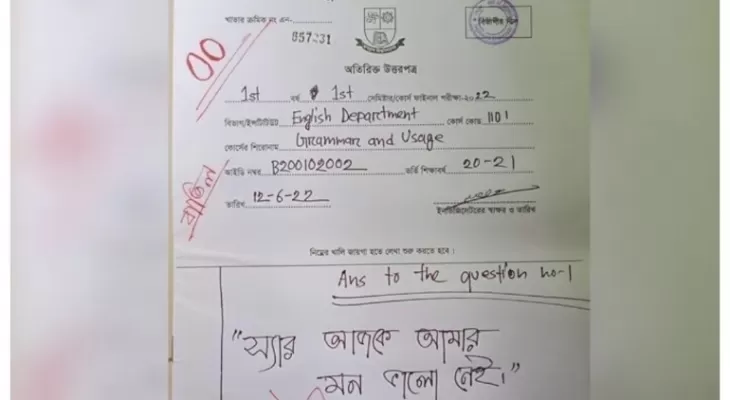 খাতার ক্রমিক নং এন-
857231
00
বিভাগীয় সিল
অতিরিক্ত উত্তরপত্র
1st বর্ষ 1st সেমিস্টার/কোর্স ফাইনাল পরীক্ষা-২০22
বিভাগ/ইনস্টিটিউট English Department কোর্স কোড 1101
কোর্সের শিরোনাম Grammar and Usage
আইডি নম্বর B200102002 ভর্তি শিক্ষাবর্ষ 20-21
বাতিল
তারিখ 12-6-22
ইনভিজিলেটরের স্বাক্ষর ও তারিখ
নিম্নের খালি জায়গা হতে লেখা শুরু করতে হবে।
Ans to the question no-1
"স্যার আজকে আমার
মন ভালো নেই।"